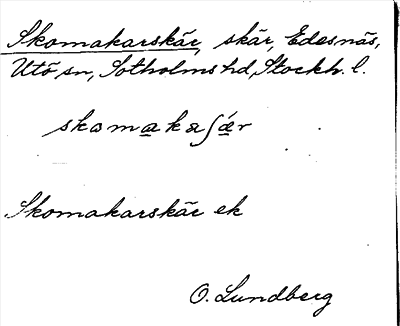 Skomakarskär, skär, Edesnäs,
Utö sn, Sotholms hd, Stockh. l.
skomakaʃǽr
Skomakarskär ek
O. Lundberg